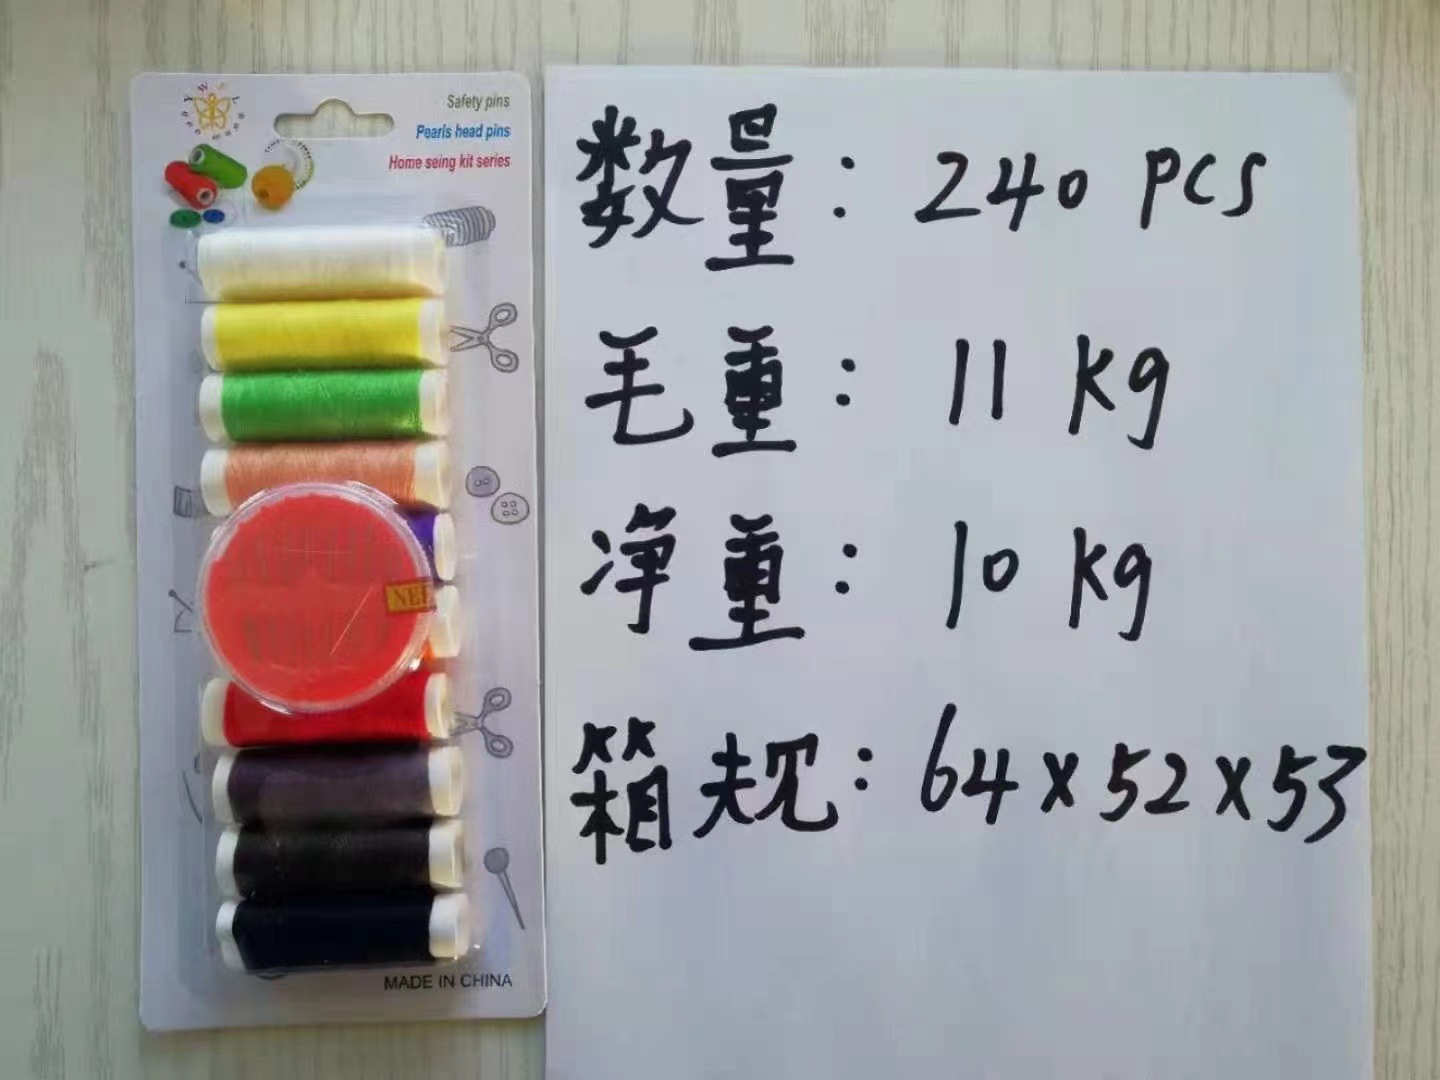 Safety pins
Pearls head pins
Home seing kit series
MADE IN CHINA
数量: 240 PCS
毛重: 11 kg
净重: 10 kg
箱规: 64x52x53